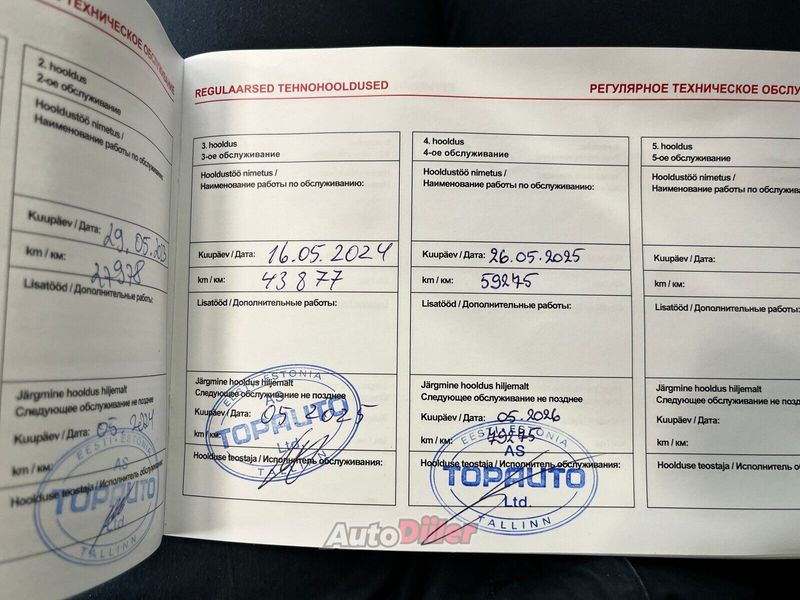 ТЕХНИЧЕСКОЕ ОБСЛУЖИВАНИЕ
2. hooldus
2-ое обслуживание
Hooldustöö nimetus /
Наименование работы по обслуживанию:
Kuupäev / Дата: 29.05.2023
km / км:
27978
Lisatööd / Дополнительные работы:
Järgmine hooldus hiljemalt
Следующее обслуживание не позднее
Kuupäev / Дата: 05.2024
km / км:
Hoolduse teostaja / Исполнитель обслуживания:
EESTI-ESTONIA
AS
TOPAUTO
Ltd.
TALLINN
REGULAARSED TEHNOHOOLDUSED
3. hooldus
3-ое обслуживание
Hooldustöö nimetus /
Наименование работы по обслуживанию:
Kuupäev / Дата: 16.05.2024
km / км: 43877
Lisatööd / Дополнительные работы:
Järgmine hooldus hiljemalt
Следующее обслуживание не позднее
Kuupäev / Дата: 05.2025
km / км:
Hoolduse teostaja / Исполнитель обслуживания:
EESTI-ESTONIA
AS
TOPAUTO
Ltd.
TALLINN
РЕГУЛЯРНОЕ ТЕХНИЧЕСКОЕ ОБСЛУ
4. hooldus
4-ое обслуживание
Hooldustöö nimetus /
Наименование работы по обслуживанию:
Kuupäev / Дата: 26.05.2025
km / км: 59275
Lisatööd / Дополнительные работы:
Järgmine hooldus hiljemalt
Следующее обслуживание не позднее
Kuupäev / Дата: 05.2026
km / км: 79275
Hoolduse teostaja / Исполнитель обслуживания:
EESTI-ESTONIA
AS
TOPAUTO
Ltd.
TALLINN
5. hooldus
5-ое обслуживание
Hooldustöö nimetus /
Наименование работы по обслужив
Kuupäev / Дата:
km / км:
Lisatööd / Дополнительные работы:
Järgmine hooldus hiljemalt
Следующее обслуживание не позд
Kuupäev / Дата:
km / км:
Hoolduse teostaja / Исполнитель об
AutoDiiler